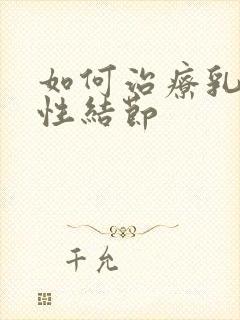 如何治療乳
性結節
千允